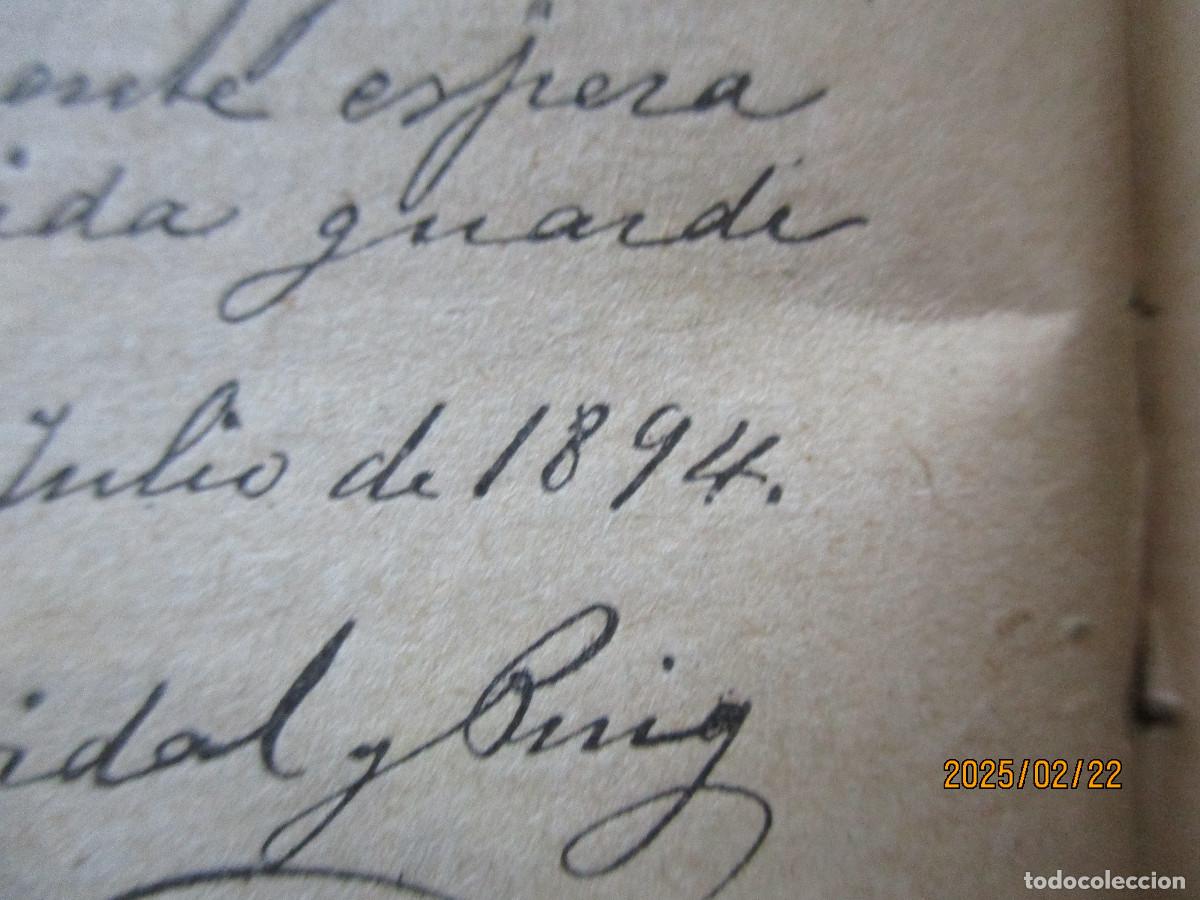 ente espera
ida guarde
Julio de 1894.
idal y Puig
2025/02/22
todocoleccion